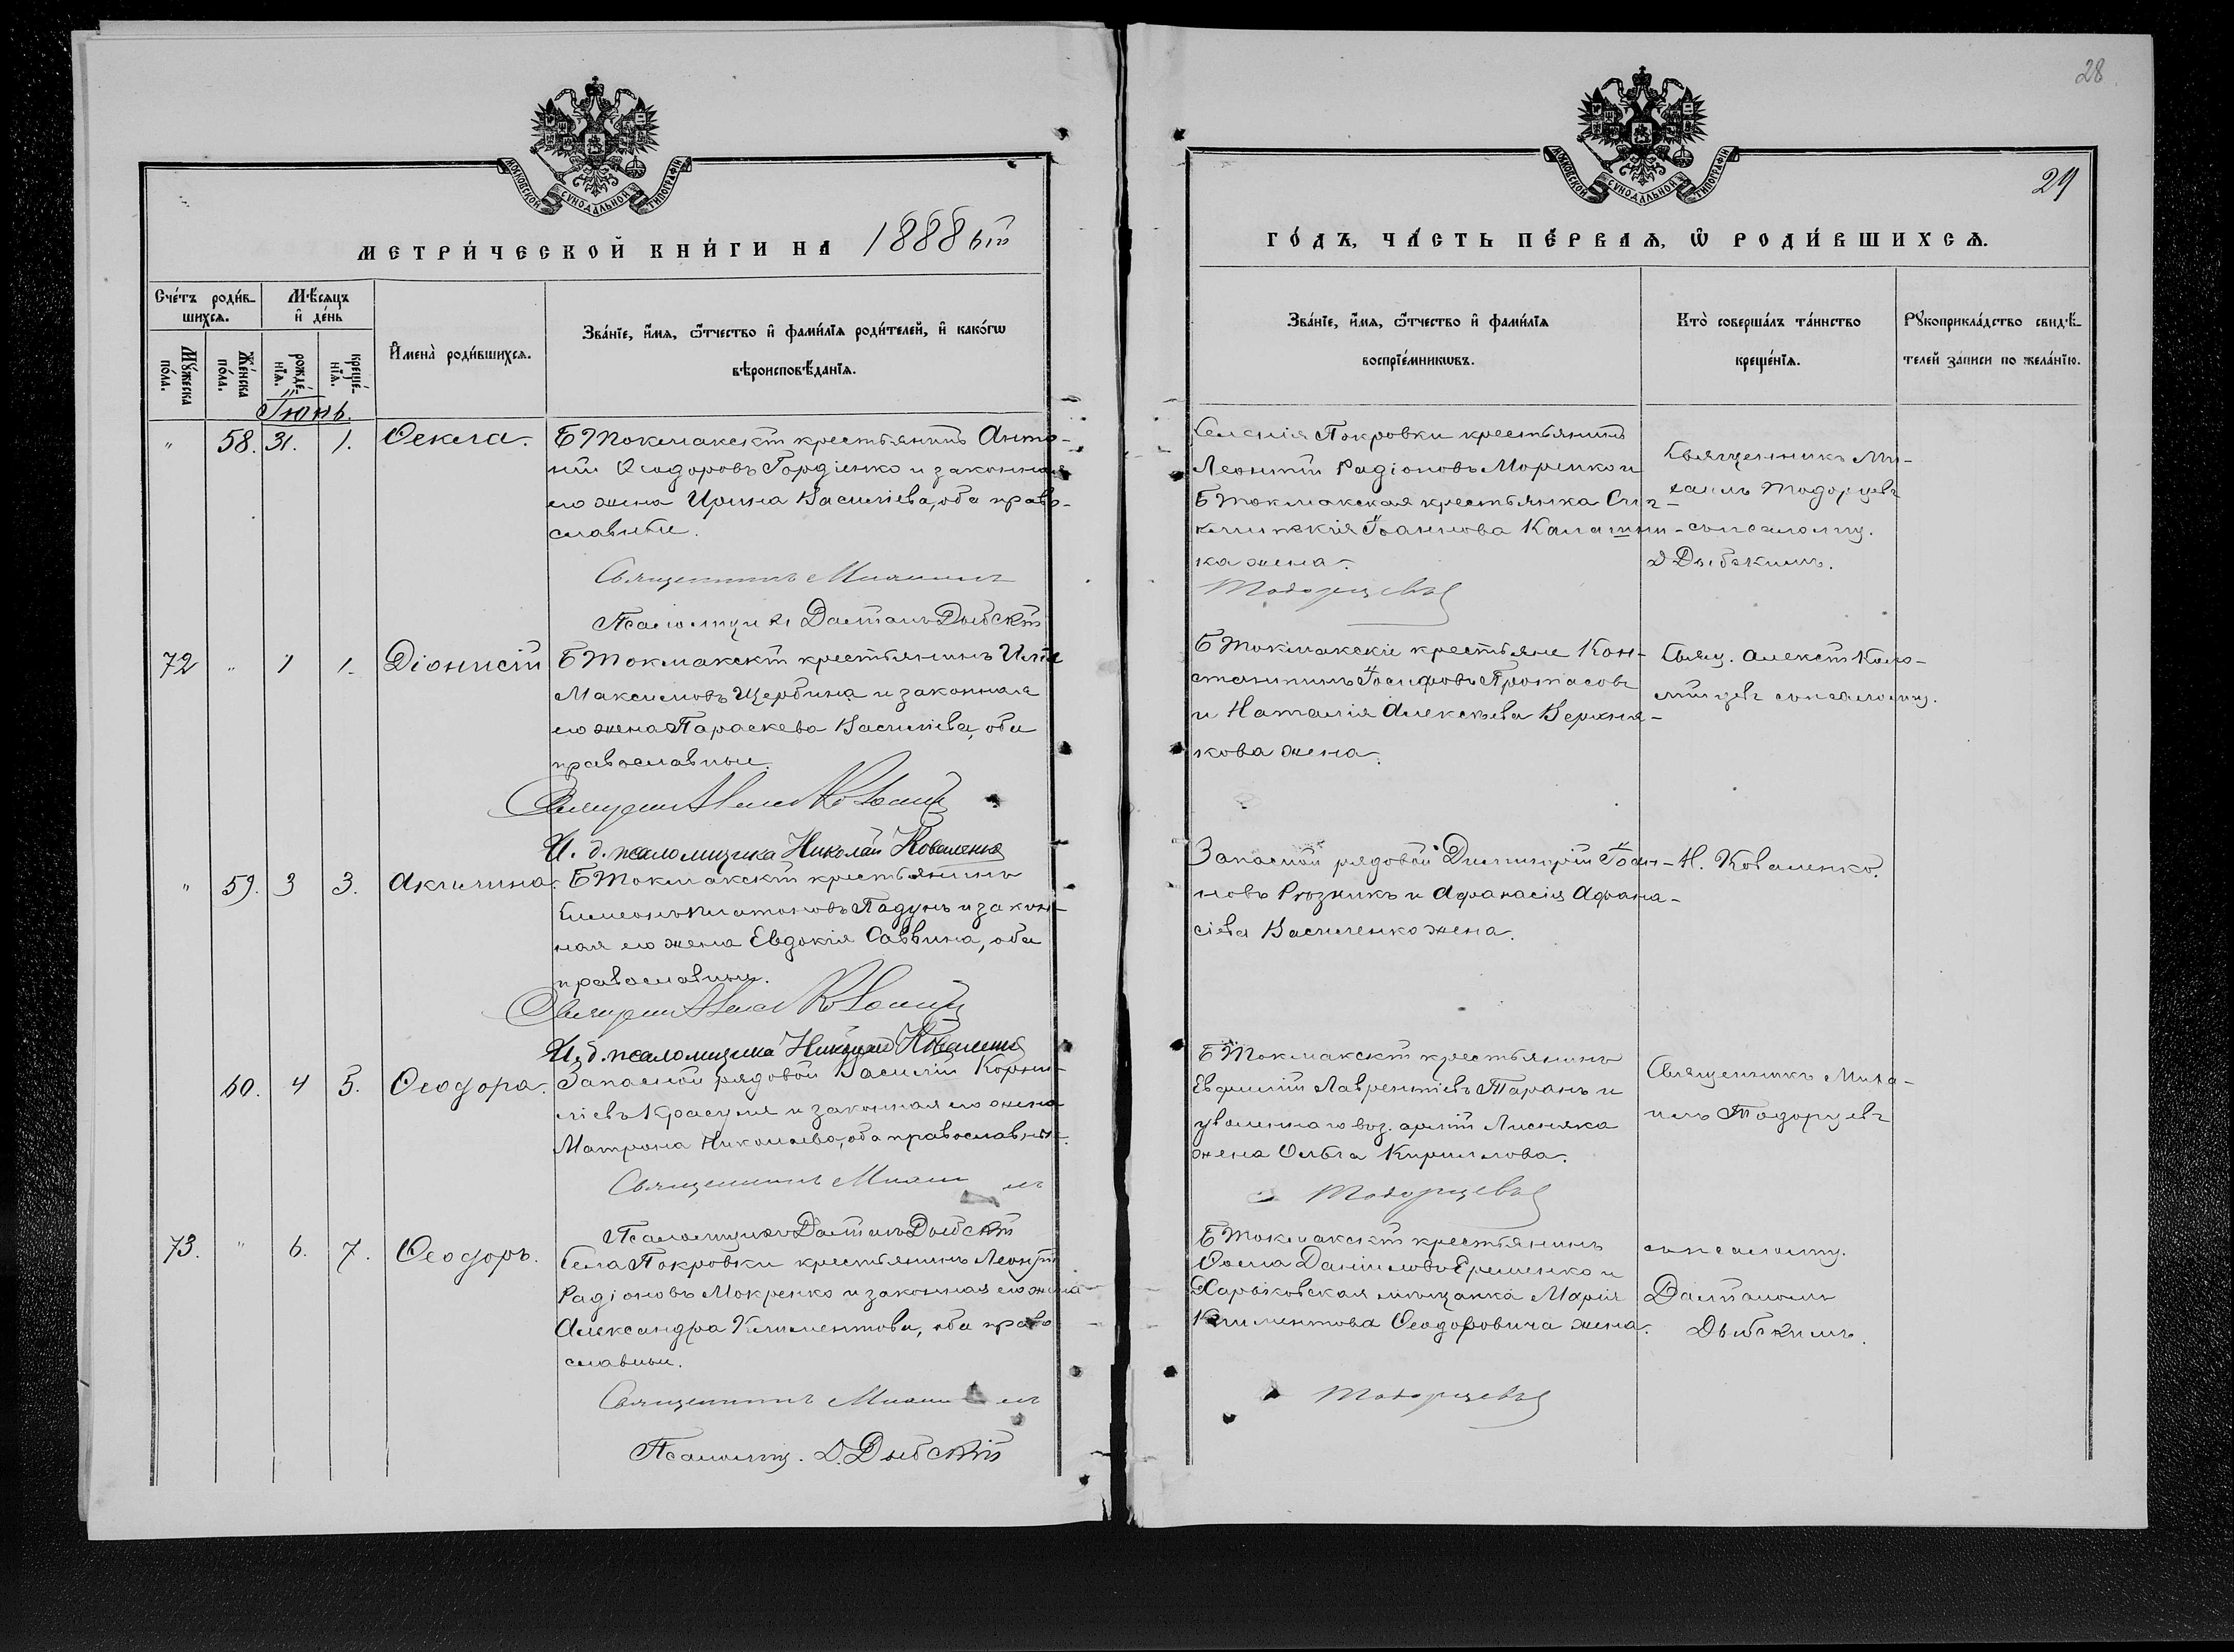 28
29
МОСКОВСКОЙ СѴНОДАЛЬНОЙ ТИПОГРАФІИ
МЕТРИ́ЧЕСКОЙ КНИ́ГИ НА 1888 ый
Сче́тъ роди́в-
шихсѧ.
Мѣ́сѧцъ
и҆ де́нь
Мꙋ́жеска
по́ла.
Же́нска
по́ла.
рожде́-
нїѧ.
креще́-
нїѧ.
И҆мена̀ роди́вшихсѧ.
Зва́нїе, и҆́мѧ, ѻ҆́тчество и҆ фами́лїѧ роди́телей, и҆ како́гѡ
вѣроисповѣ́данїѧ.
Іюнь.
" 58. 31. 1. Ѳекла.
Б Токмакскій крестьянинъ Анто-
ній Ѳеодоровъ Гордіенко и законная
его жена Ирина Васильева, оба право-
славные.
Священникъ Михаилъ
Псаломщикъ Даміанъ Дыбскій
72 " 1 1. Діонисій
Б Токмакскій крестьянинъ Илія
Максимовъ Щербина и законная
его жена Параскева Васильева, оба
православные.
И. д. псаломщика Николай Коваленко
" 59. 3 3. Акилина.
Б Токмакскій крестьянинъ
Симеонъ Платоновъ Падунъ и закон-
ная его жена Евдокія Саввина, оба
православные.
И. д. псаломщика Николай Коваленко
60. 4 5. Ѳеодора.
Запасной рядовой Василій Корни-
ліевъ Красуля и законная его жена
Матрона Николаева, оба православные.
Священникъ Михаилъ
Псаломщикъ Даміанъ Дыбскій
73. " 6. 7. Ѳеодоръ.
Села Покровки крестьянинъ Леонтій
Радіоновъ Мокренко и законная его жена
Александра Климентова, оба право
славные.
Священникъ Михаилъ
Псаломщ. Д. Дыбскій
МОСКОВСКОЙ СѴНОДАЛЬНОЙ ТИПОГРАФІИ
ГО́ДЪ, ЧА́СТЬ ПЕ́РВАѦ, Ѡ҆ РОДИ́ВШИХСѦ.
Зва́нїе, и҆́мѧ, ѻ҆́тчество и҆ фами́лїѧ
воспрїе́мникѡвъ.
Кто̀ соверша́лъ та́инство
креще́нїѧ.
Рꙋкоприкла́дство свидѣ́-
телей за́писи по жела́нїю.
Селенія Покровки крестьянинъ
Леонтій Радіоновъ Моренко и
Б Токмакская крестьянка Син-
клитикія Іоаннова Калашни-
ка жена.
Тодорцевъ
Священникъ Ми-
хаилъ Тодорцевъ
съ псаломщ.
Д Дыбскимъ.
Б Токмакскіе крестьяне Кон-
стантинъ Іосифовъ Протасовъ
и Наталія Алексѣева Верхня-
кова жена.
Свящ. Алексій
съ псаломщ.
Запасной рядовой Димитрій Іоан-
новъ Рѣзникъ и Афанасія Афана-
сіева Василенко жена.
Н. Коваленко.
Б Токмакскій крестьянинъ
Евфимій Лаврентіевъ Таранъ и
уволеннаго въ з. арміи Лисняка
жена Ольга Кириллова.
Тодорцевъ
Священникъ Миха-
илъ Тодорцевъ
Б Токмакскій крестьянинъ
Ѳома Даніиловъ Еременко и
Харьковская мѣщанка Марія
Климентова Ѳеодоровича жена.
Тодорцевъ
съ псаломщ.
Даміаномъ
Дыбскимъ.